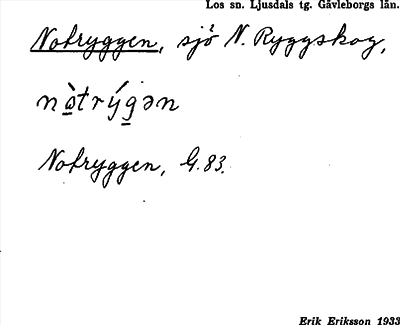 Los sn. Ljusdals tg. Gävleborgs län.
Notryggen, sjö N. Ryggskog,
nòtrýgən
Notryggen, G. 83.
Erik Eriksson 1933